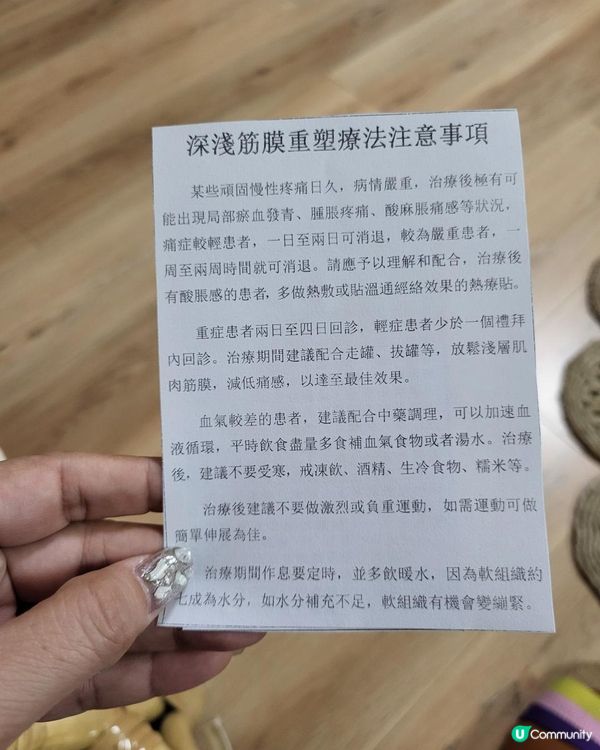 深淺筋膜重塑療法注意事項
某些頑固慢性疼痛日久，病情嚴重，治療後極有可
能出現局部瘀血發青、腫脹疼痛、酸麻脹痛感等狀況，
痛症較輕患者，一日至兩日可消退，較為嚴重患者，一
周至兩周時間就可消退。請應予以理解和配合，治療後
有酸脹感的患者，多做熱敷或貼溫通經絡效果的熱療貼。
重症患者兩日至四日回診，輕症患者少於一個禮拜
內回診。治療期間建議配合走罐、拔罐等，放鬆淺層肌
肉筋膜，減低痛感，以達至最佳效果。
血氣較差的患者，建議配合中藥調理，可以加速血
液循環，平時飲食盡量多食補血氣食物或者湯水。治療
後，建議不要受寒，戒凍飲、酒精、生冷食物、糯米等。
治療後建議不要做激烈或負重運動，如需運動可做
簡單伸展為佳。
治療期間作息要定時，並多飲暖水，因為軟組織約
七成為水分，如水分補充不足，軟組織有機會變繃緊。
U Community